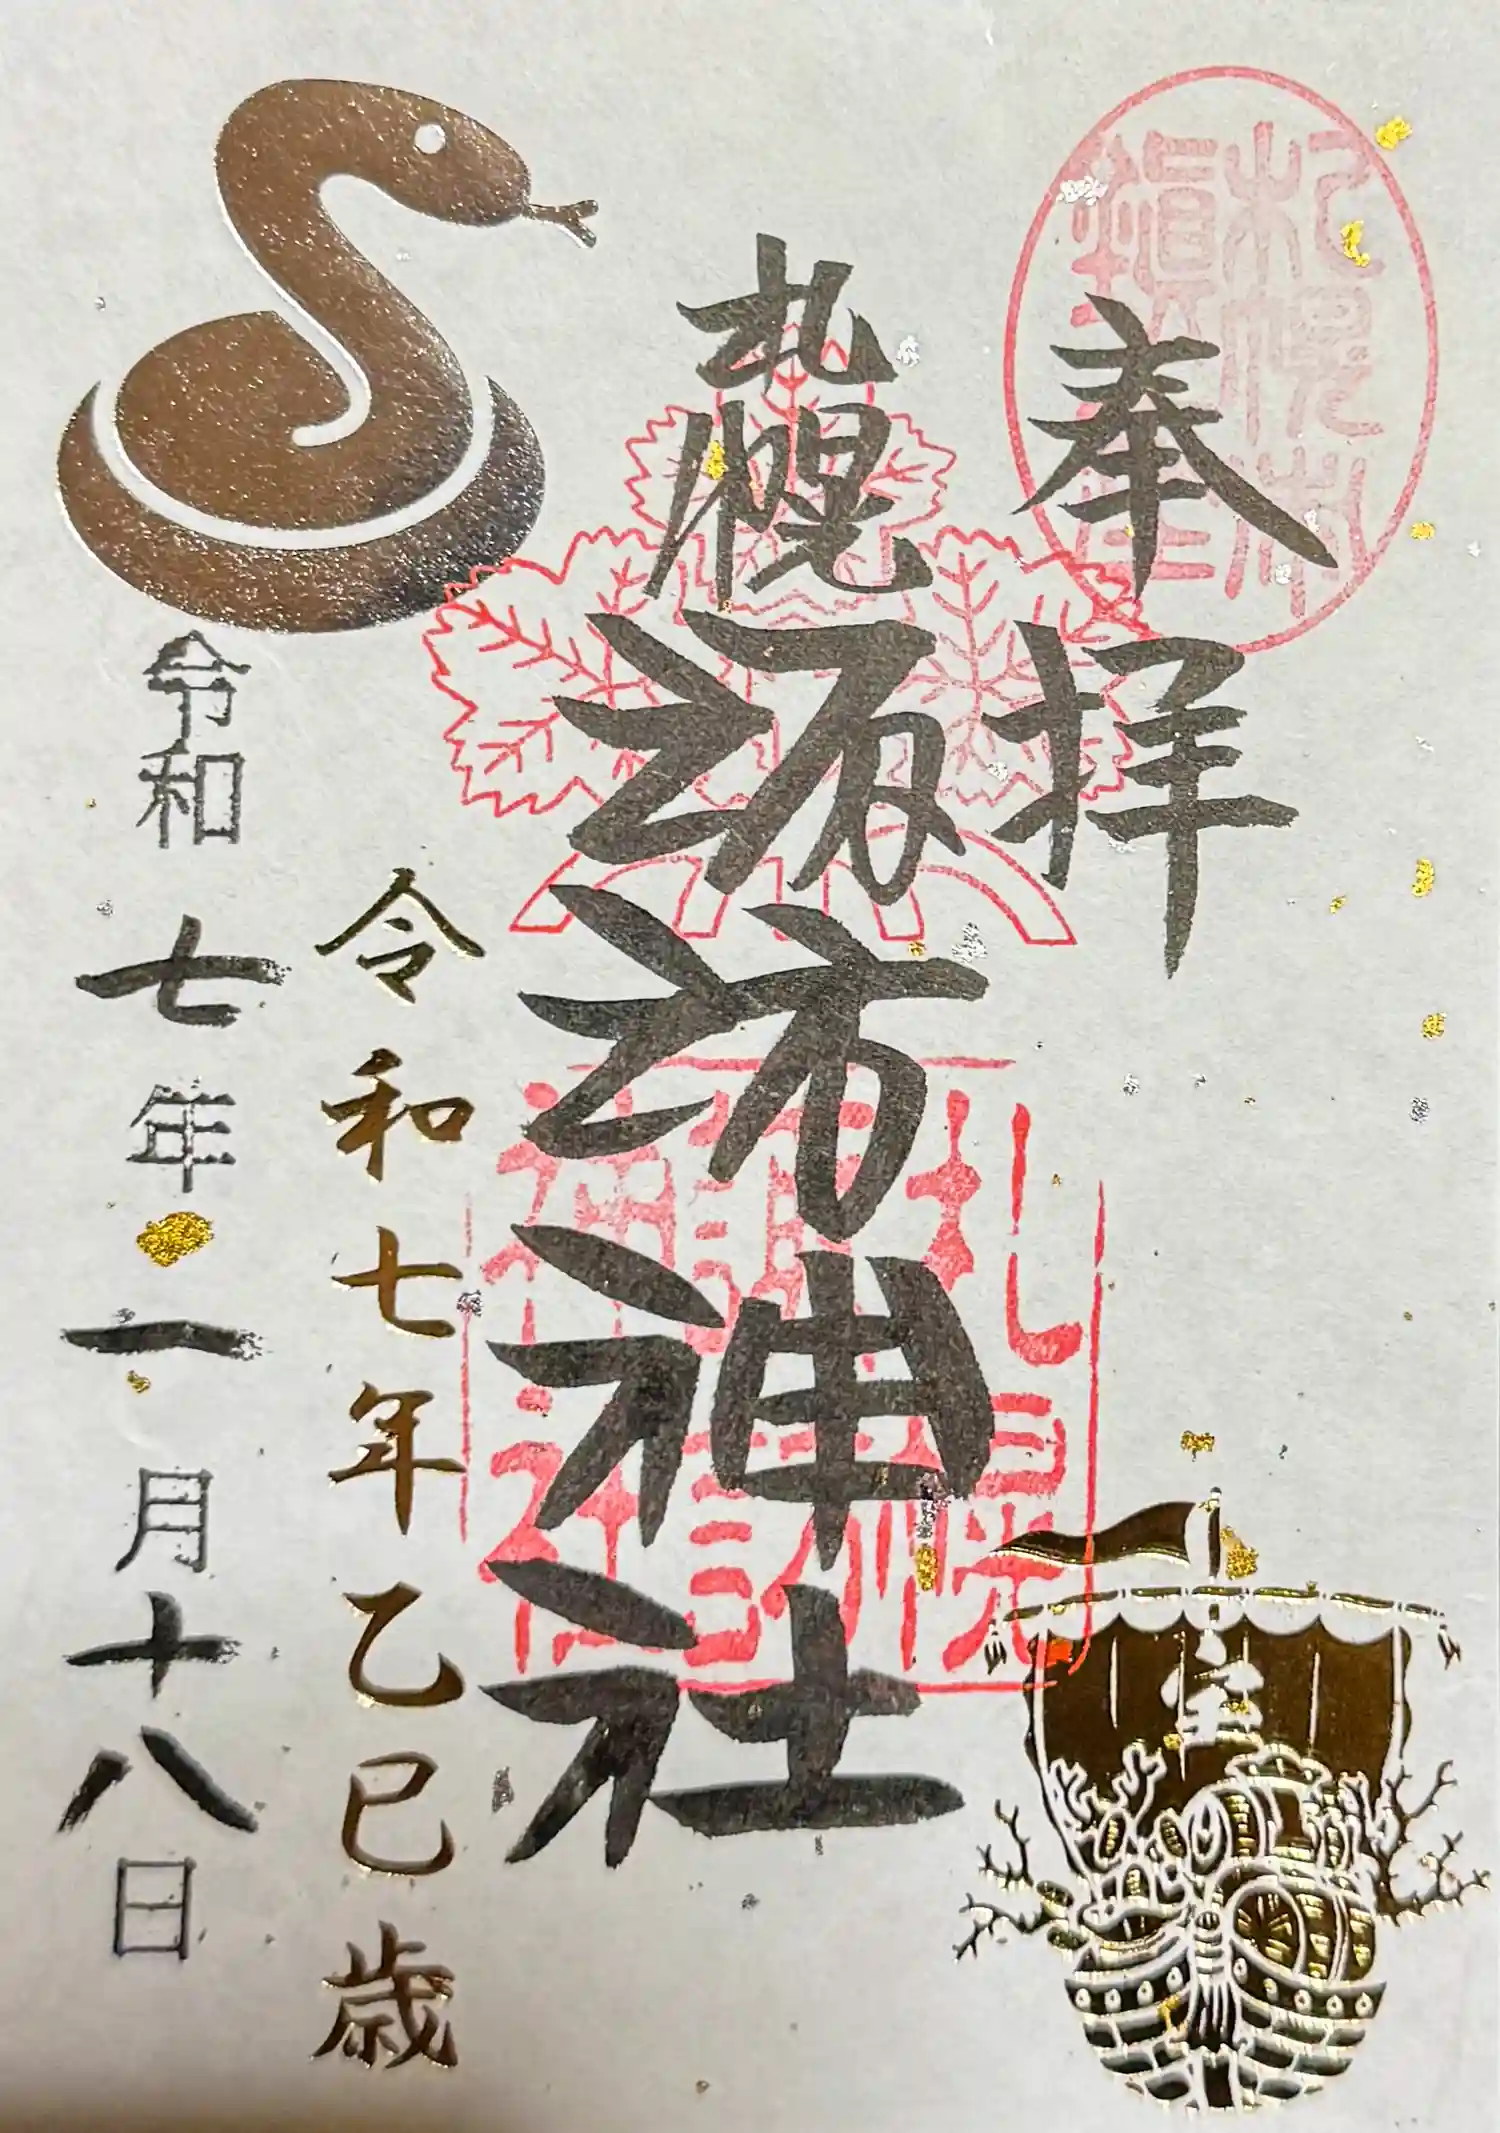 奉拝
札幌諏訪神社
令和七年乙巳歳
令和七年一月十八日
宝
札幌諏訪神社